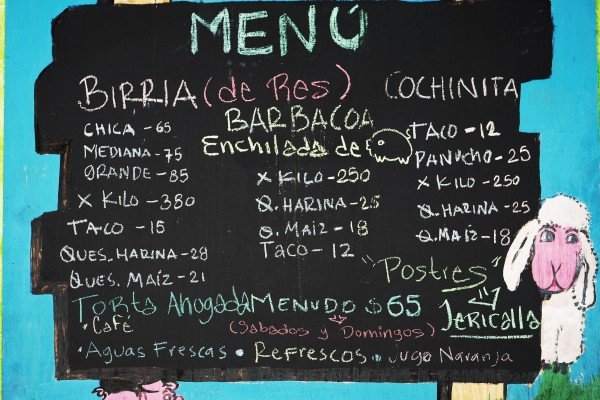 MENÚ
BIRRIA (de Res)
CHICA - 65
MEDIANA - 75
GRANDE - 85
X KILO - 380
TACO - 15
QUES. HARINA - 28
QUES. MAÍZ - 21
BARBACOA
Enchilada de
X KILO - 250
Q. HARINA - 25
Q. MAÍZ - 18
TACO - 12
COCHINITA
TACO - 12
PANUCHO - 25
X KILO - 250
Q. HARINA - 25
Q. MAÍZ - 18
"Postres"
JERICALLA
Torta Ahogada MENUDO $65
(Sabados y Domingos)
• Café
• Aguas Frescas • Refrescos • Jugo Naranja